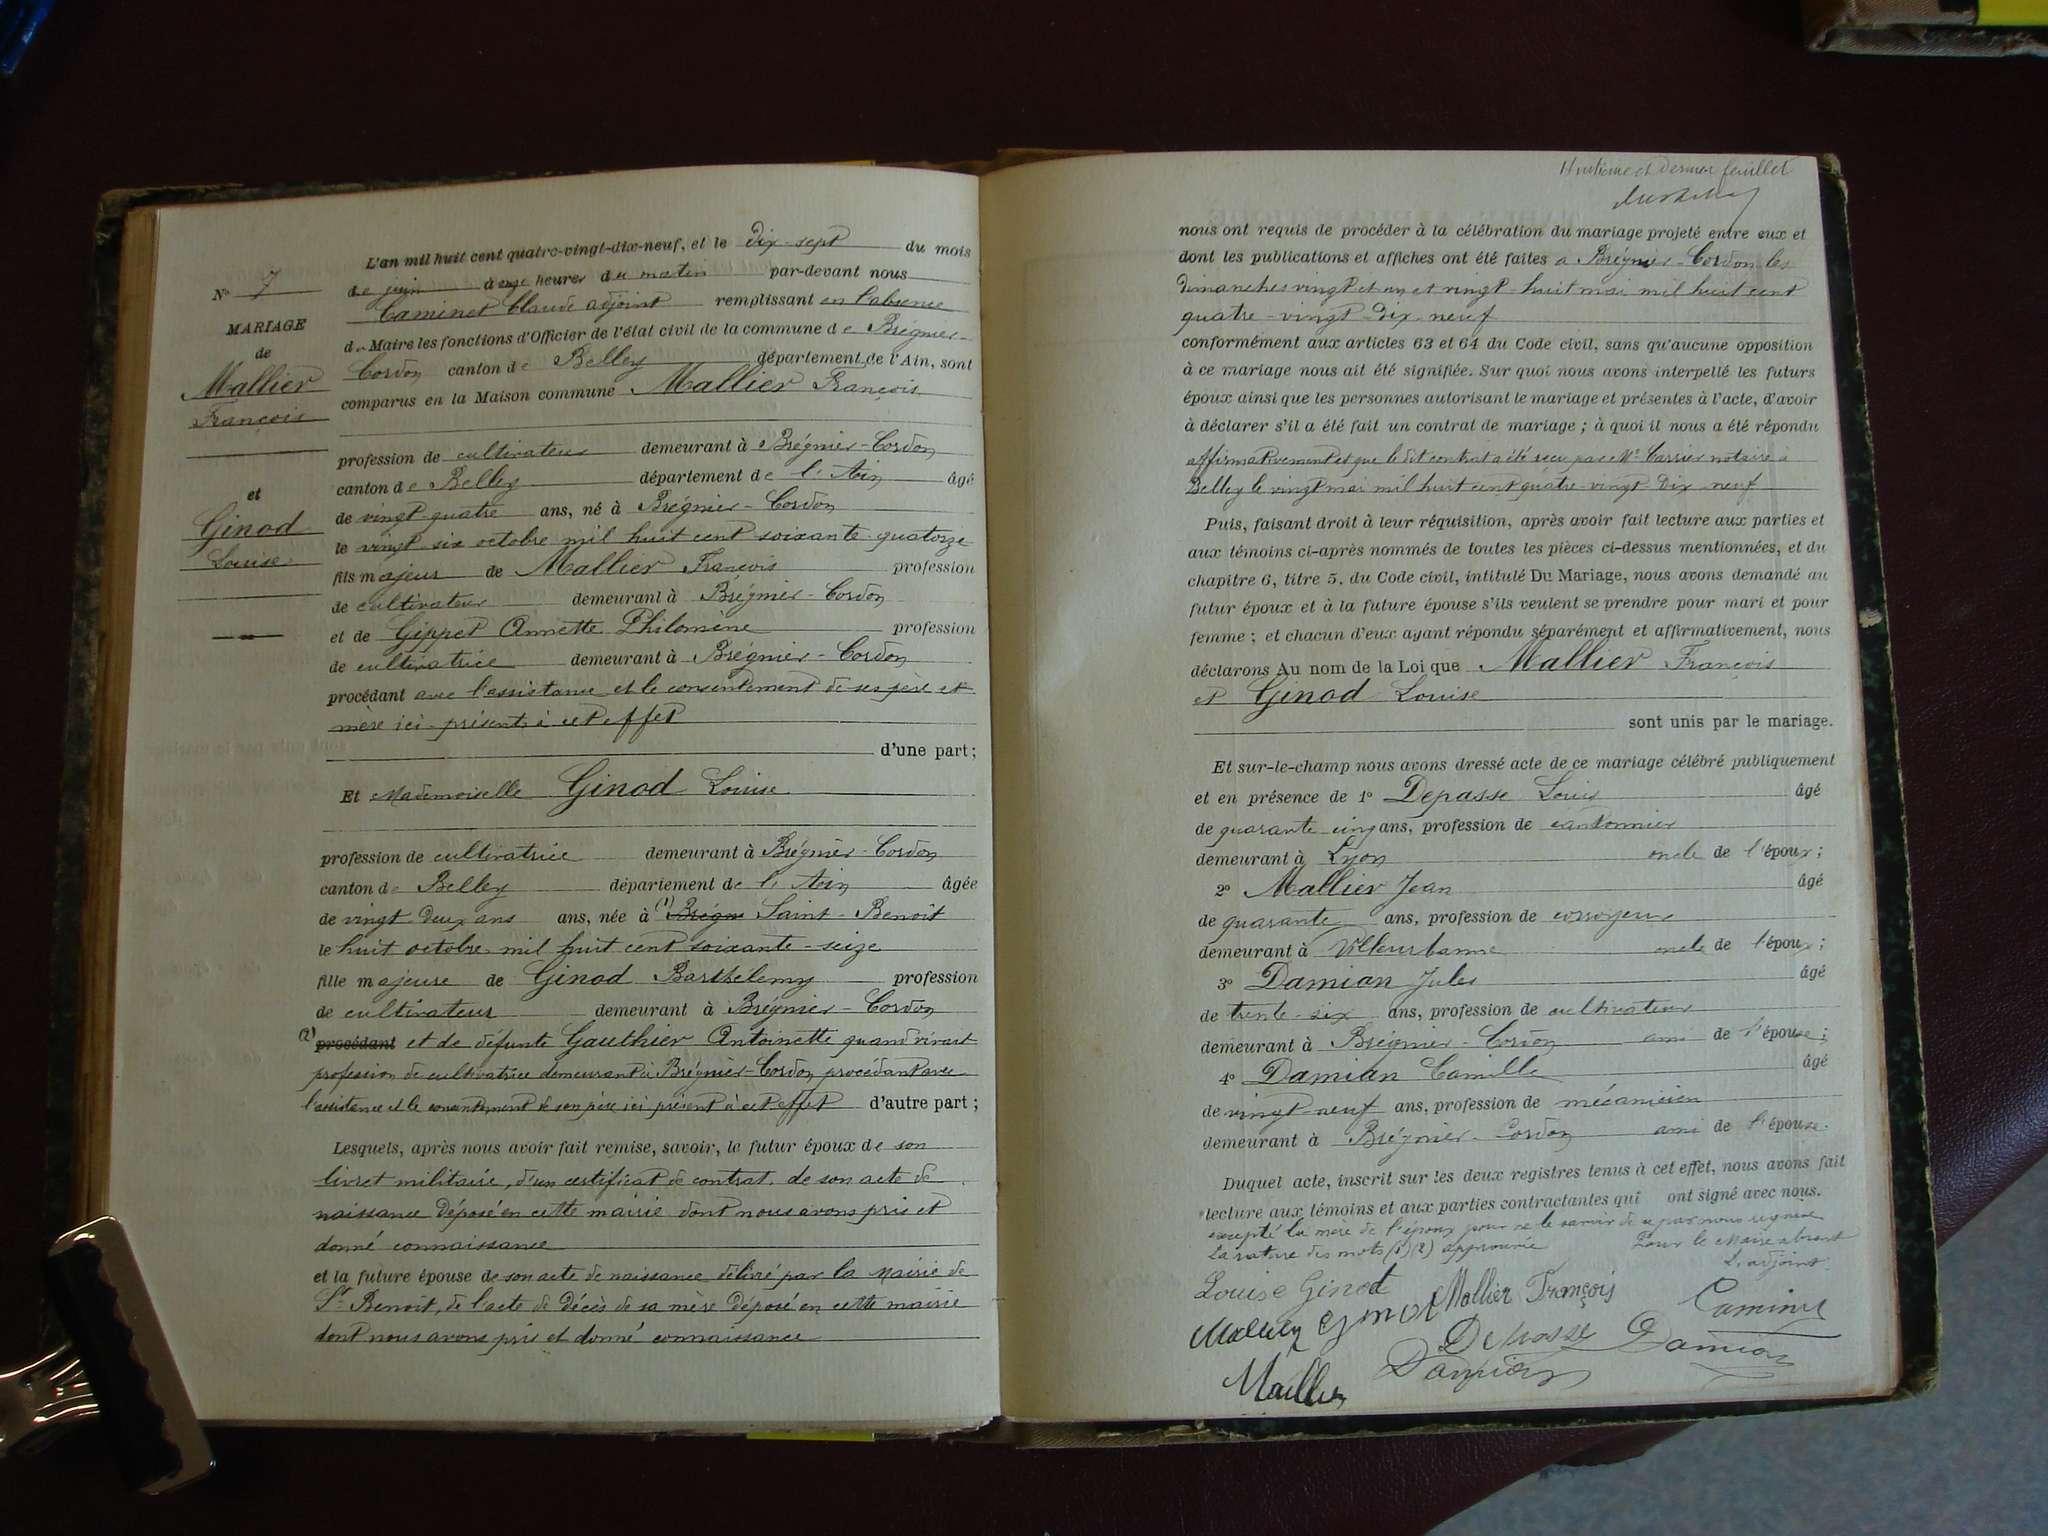 N° 7
MARIAGE
de
Mallier
François
et
Ginod
Louise
L'an mil huit cent quatre-vingt-dix-neuf, et le dix-sept du mois
de juin à onze heures du matin par-devant nous
Caminet Claude adjoint remplissant en l'absence
du Maire les fonctions d'Officier de l'état civil de la commune de Brégnier-
Cordon canton de Belley département de l'Ain, sont
comparus en la Maison commune Mallier François
profession de cultivateur demeurant à Brégnier-Cordon
canton de Belley département de l'Ain âgé
de vingt-quatre ans, né à Brégnier-Cordon
le vingt-six octobre mil huit cent soixante-quatorze
fils majeur de Mallier François profession
de cultivateur demeurant à Brégnier-Cordon
et de Gippet Annette Philomène profession
de cultivatrice demeurant à Brégnier-Cordon
procédant avec l'assistance et le consentement de ses père et
mère ici-présents à cet effet
d'une part;
Et Mademoiselle Ginod Louise
profession de cultivatrice demeurant à Brégnier-Cordon
canton de Belley département de l'Ain âgée
de vingt-deux ans ans, née à (1) Brégn Saint-Benoit
le huit octobre mil huit cent soixante-seize
fille majeure de Ginod Barthelemy profession
de cultivateur demeurant à Brégnier-Cordon
(2) procédant et de défunte Gauthier Antoinette quand vivait
profession de cultivatrice demeurant à Brégnier-Cordon procédant avec
l'assistance et le consentement de son père ici présent à cet effet d'autre part;
Lesquels, après nous avoir fait remise, savoir, le futur époux de son
livret militaire, d'un certificat de contrat, de son acte de
naissance déposé en cette mairie dont nous avons pris et
donné connaissance
et la future épouse de son acte de naissance délivré par la Mairie de
St Benoit, de l'acte de décès de sa mère déposé en cette mairie
dont nous avons pris et donné connaissance
Huitième et dernier feuillet
nous ont requis de procéder à la célébration du mariage projeté entre eux et
dont les publications et affiches ont été faites à Brégnier-Cordon les
dimanches vingt et un et vingt-huit mai mil huit cent
quatre-vingt-dix-neuf
conformément aux articles 63 et 64 du Code civil, sans qu'aucune opposition
à ce mariage nous ait été signifiée. Sur quoi nous avons interpellé les futurs
époux ainsi que les personnes autorisant le mariage et présentes à l'acte, d'avoir
à déclarer s'il a été fait un contrat de mariage; à quoi il nous a été répondu
affirmativement et que le dit contrat a été reçu par Me Carrier notaire à
Belley le vingt mai mil huit cent quatre-vingt-dix neuf
Puis, faisant droit à leur réquisition, après avoir fait lecture aux parties et
aux témoins ci-après nommés de toutes les pièces ci-dessus mentionnées, et du
chapitre 6, titre 5, du Code civil, intitulé Du Mariage, nous avons demandé au
futur époux et à la future épouse s'ils veulent se prendre pour mari et pour
femme; et chacun d'eux ayant répondu séparément et affirmativement, nous
déclarons Au nom de la Loi que Mallier François
et Ginod Louise
sont unis par le mariage.
Et sur-le-champ nous avons dressé acte de ce mariage célébré publiquement
et en présence de 1° Depasse Louis âgé
de quarante-cinq ans, profession de cantonnier
demeurant à Lyon oncle de l'époux;
2° Mallier Jean âgé
de quarante ans, profession de corroyeur
demeurant à Villeurbanne oncle de l'époux;
3° Damian Jules âgé
de trente-six ans, profession de cultivateur
demeurant à Brégnier-Cordon ami de l'épouse;
4° Damian Camille âgé
de vingt-neuf ans, profession de mécanicien
demeurant à Brégnier-Cordon ami de l'épouse.
Duquel acte, inscrit sur les deux registres tenus à cet effet, nous avons fait
lecture aux témoins et aux parties contractantes qui ont signé avec nous.
excepté la mère de l'époux pour ne le savoir de ce par nous requise
La rature des mots (1) (2) approuvée Pour le Maire absent
L'adjoint
Louise Ginod Mallier François Caminet
Ginot
Depasse Damian
Damian
Maillier